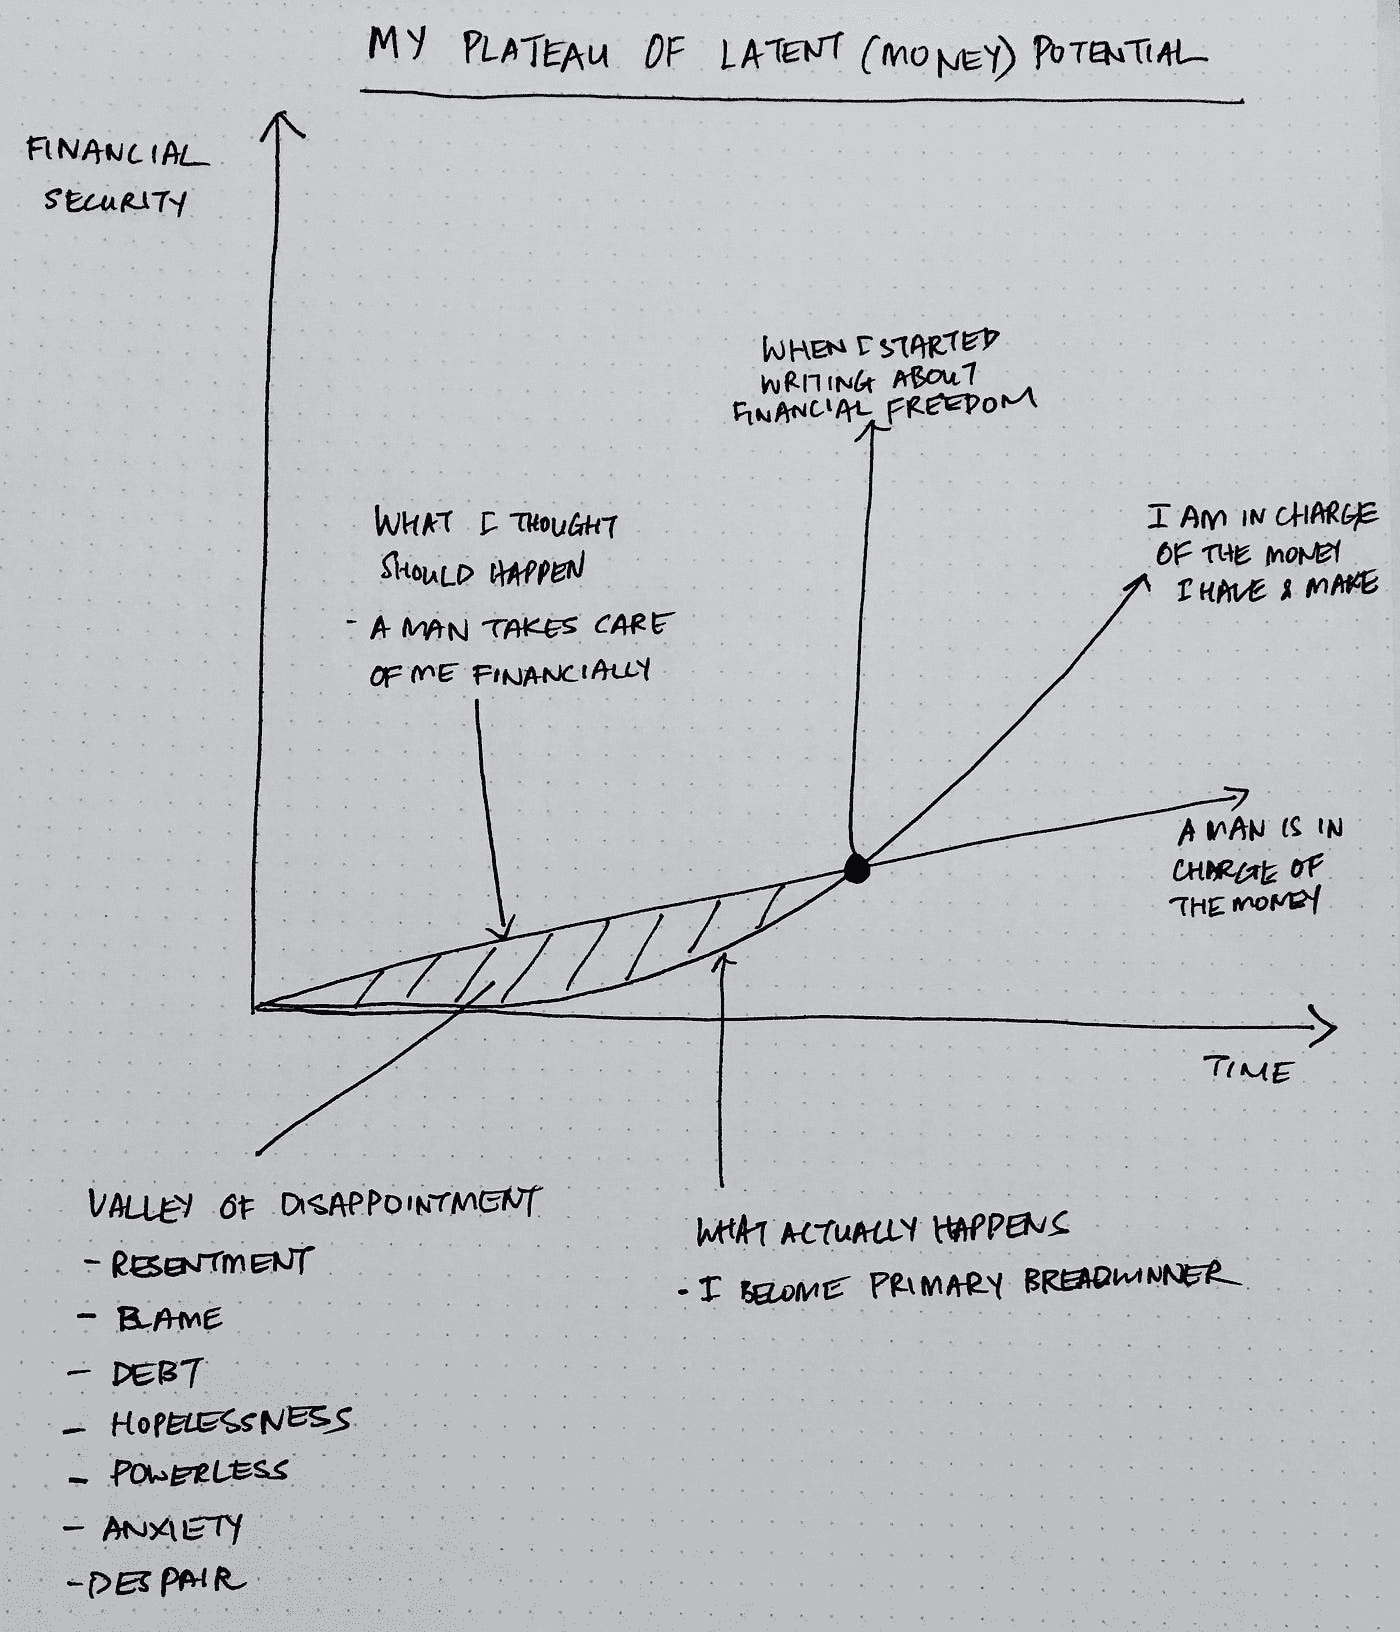 MY PLATEAU OF LATENT (MONEY) POTENTIAL
FINANCIAL
SECURITY
WHEN I STARTED
WRITING ABOUT
FINANCIAL FREEDOM
WHAT I THOUGHT
SHOULD HAPPEN
- A MAN TAKES CARE
OF ME FINANCIALLY
I AM IN CHARGE
OF THE MONEY
I HAVE & MAKE
A MAN IS IN
CHARGE OF
THE MONEY
TIME
VALLEY OF DISAPPOINTMENT
- RESENTMENT
- BLAME
- DEBT
- HOPELESSNESS
- POWERLESS
- ANXIETY
- DESPAIR
WHAT ACTUALLY HAPPENS
- I BECOME PRIMARY BREADWINNER